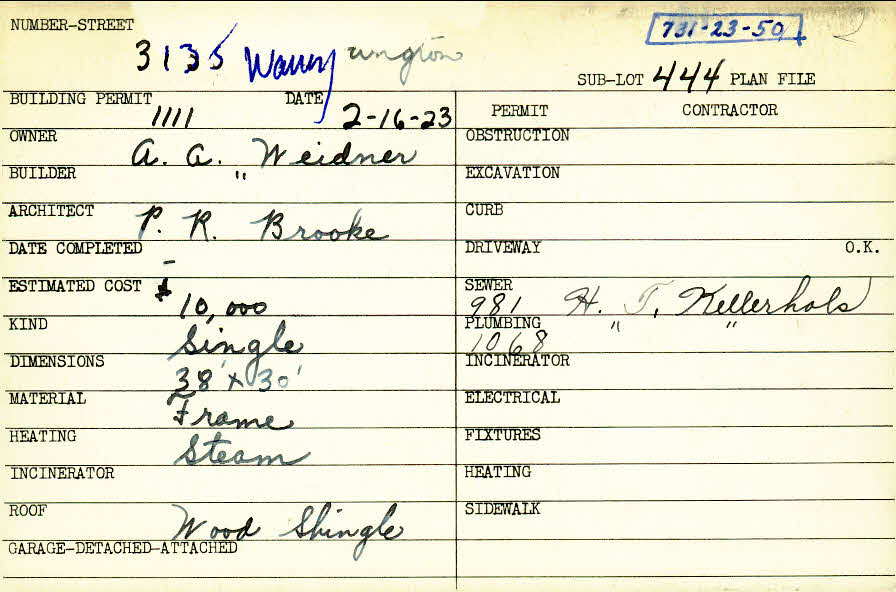 NUMBER-STREET
731-23-50
3135
SUB-LOT 444 PLAN FILE
BUILDING PERMIT 1111 DATE 2-16-23
PERMIT CONTRACTOR
OWNER A. A. Weidner
OBSTRUCTION
BUILDER "
EXCAVATION
ARCHITECT P. R. Brooke
CURB
DATE COMPLETED -
DRIVEWAY O.K.
ESTIMATED COST $ 10,000
SEWER 981 H. T. Kellerhals
KIND Single
PLUMBING 1068 " "
DIMENSIONS 38' x 30'
INCINERATOR
MATERIAL Frame
ELECTRICAL
HEATING Steam
FIXTURES
INCINERATOR
HEATING
ROOF Wood Shingle
SIDEWALK
GARAGE-DETACHED-ATTACHED